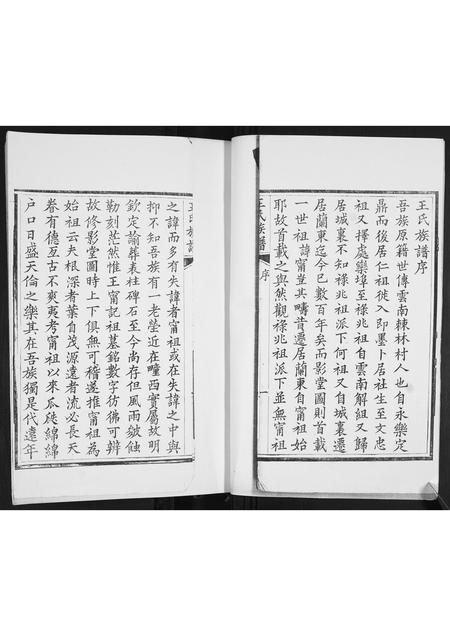 王氏族譜序
吾族原籍世傳雲南棘林村人也自永樂定
鼎而後居仁祖徙入即墨卜居社生至文忠
祖又擇處欒埠至祿兆祖自雲南解組又歸
居城裏不知祿兆祖派下何祖又自城裏遷
居蘭東迄今已數百年矣而影堂圖則首載
一世祖諱甯豈其疇昔遷居蘭東自甯祖始
耶故首載之與然觀祿兆祖派下並無甯祖
王氏族譜
序
之諱而多有失諱者甯祖或在失諱之中與
抑不知吾族有一老塋近在疃西實屬故明
欽定諭葬表柱碑石至今尚存但風雨皴蝕
勒刻茫然惟王甯記祖墓銘數字彷彿可辨
故修影堂圖時上下俱無可稽遂推甯祖為
始祖云夫根深者葉自茂源遠者流必長天
眷有德亙古不爽夷考甯祖以來瓜瓞綿綿
户口日盛天倫之樂其在吾族獨是代遠年
王氏族譜